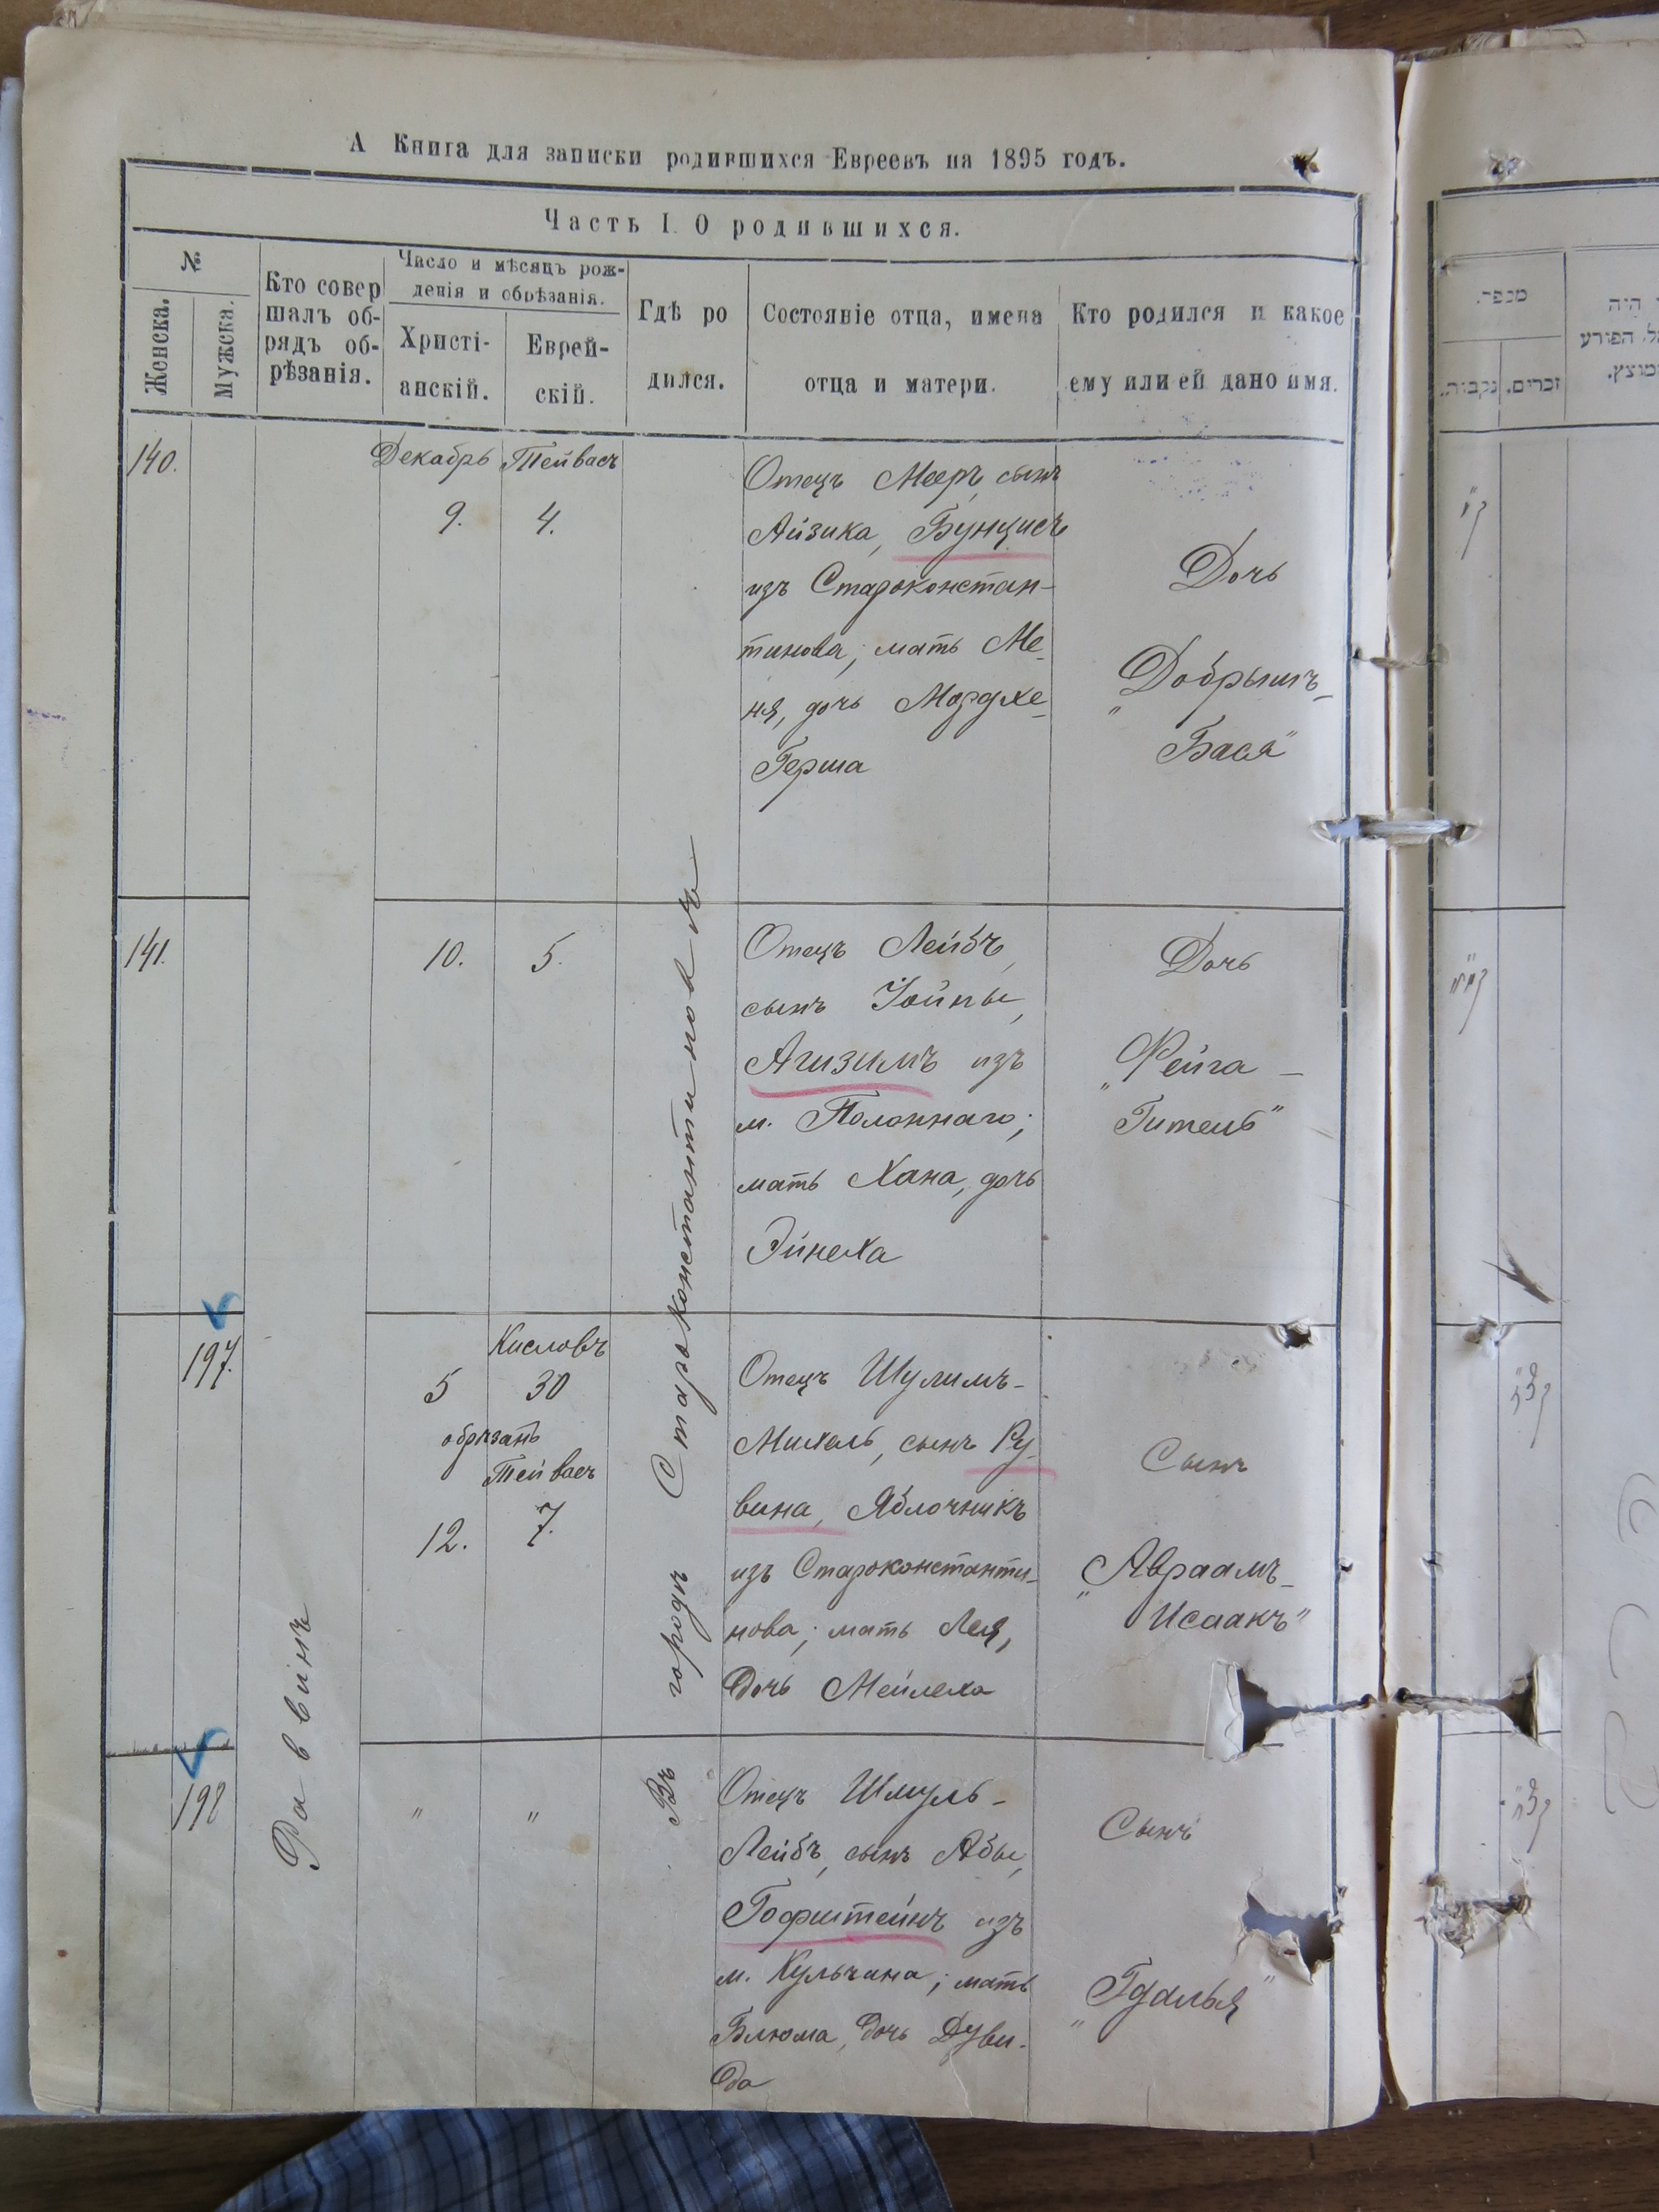 А Книга для записки родившихся Евреевъ на 1895 годъ.
Часть I. О родившихся.
№
Женска.
Мужска.
Кто совер
шалъ об-
рядъ об-
рѣзанія.
Число и мѣсяцъ рож-
денія и обрѣзанія.
Христі-
анскій.
Еврей-
скій.
Гдѣ ро
дился.
Состояніе отца, имена
отца и матери.
Кто родился и какое
ему или ей дано имя.
140.
Декабрь Тейвасъ
9. 4.
Отецъ Мееръ, сынъ
Айзика, Бунцисъ
изъ Староконстан-
тинова; мать Ме-
ня, дочь Мордхе-
Герша
Дочь
"Добрышъ-
Бася"
141.
10. 5.
Отецъ Лейбъ,
сынъ Іойны,
Агизимъ изъ
м. Полоннаго;
мать Хана, дочь
Эйнеха
Дочь
"Фейга -
Гитель"
197.
Кисловъ
5 30
обрѣзанъ
Тейвасъ
12. 7.
Отецъ Шулимъ-
Михель, сынъ Ру-
вина, Яблочникъ
изъ Староконстанти-
нова; мать Лея,
дочь Мейлеха
Сынъ
"Авраамъ-
Исаакъ"
198
" "
Отецъ Шмуль-
Лейбъ, сынъ Абы,
Гофштейнъ изъ
м. Кульчина; мать
Блюма, дочь Дуви-
да
Сынъ
"Гдалья"
Раввинъ
Въ городѣ Староконстантиновѣ
מספר.
זכרים.
נקבות.
היה
הפורע